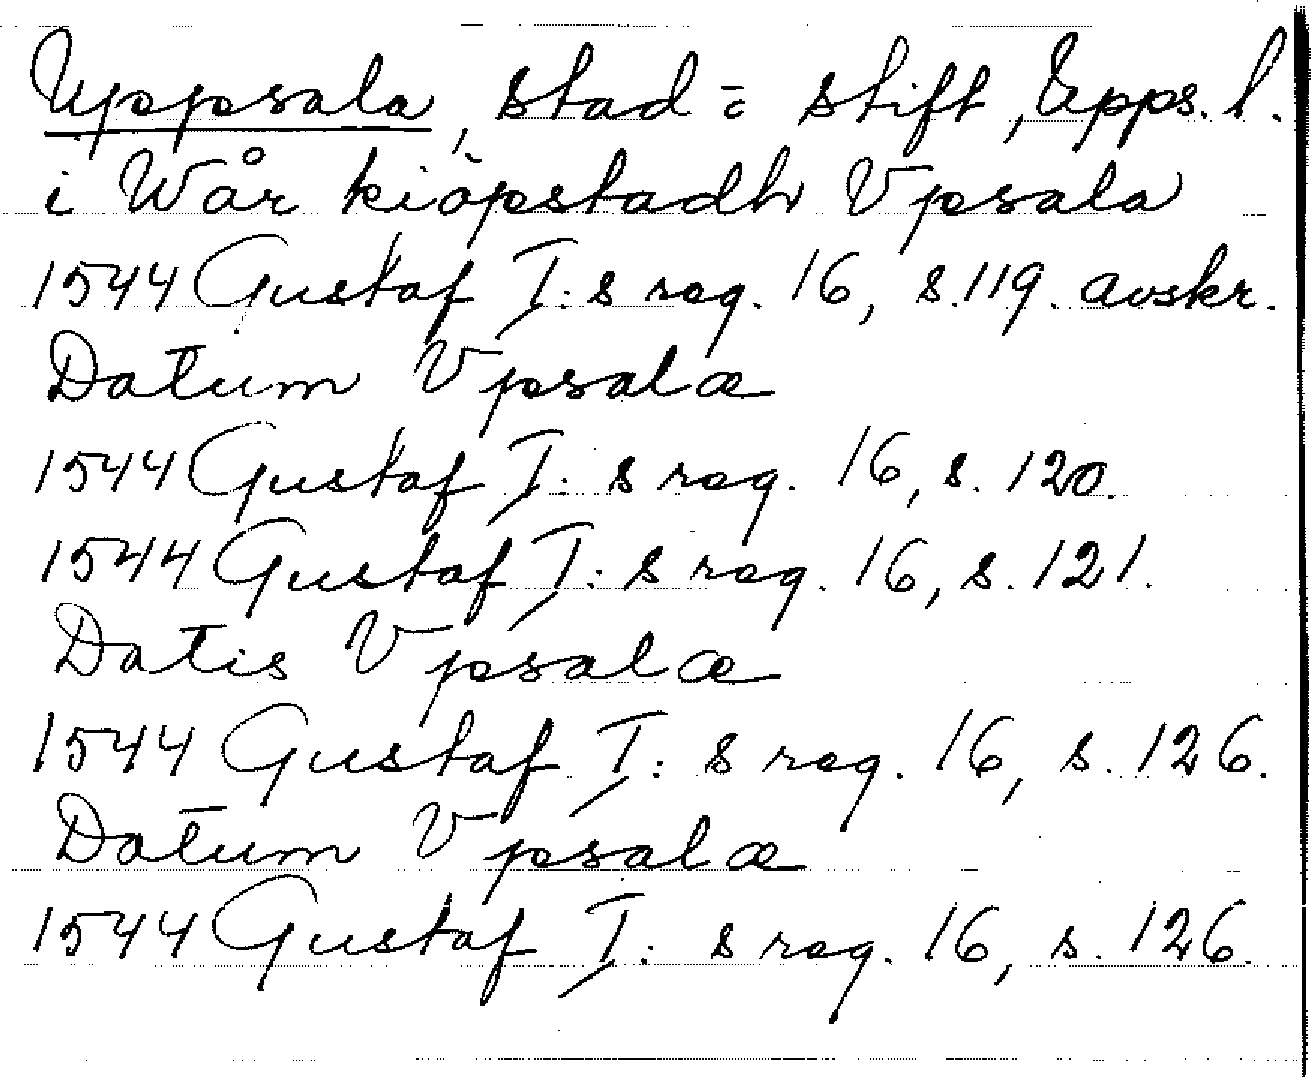 Uppsala, stad o stift, Upps. l.
i Wår kiöpstadh Vpsala
1544 Gustaf I:s reg. 16, s. 119. avskr.
Datum Vpsalæ
1544 Gustaf I:s reg. 16, s. 120.
1544 Gustaf I:s reg. 16, s. 121.
Datis Vpsalæ
1544 Gustaf I:s reg. 16, s. 126.
Datum Vpsalæ
1544 Gustaf I:s reg. 16, s. 126.